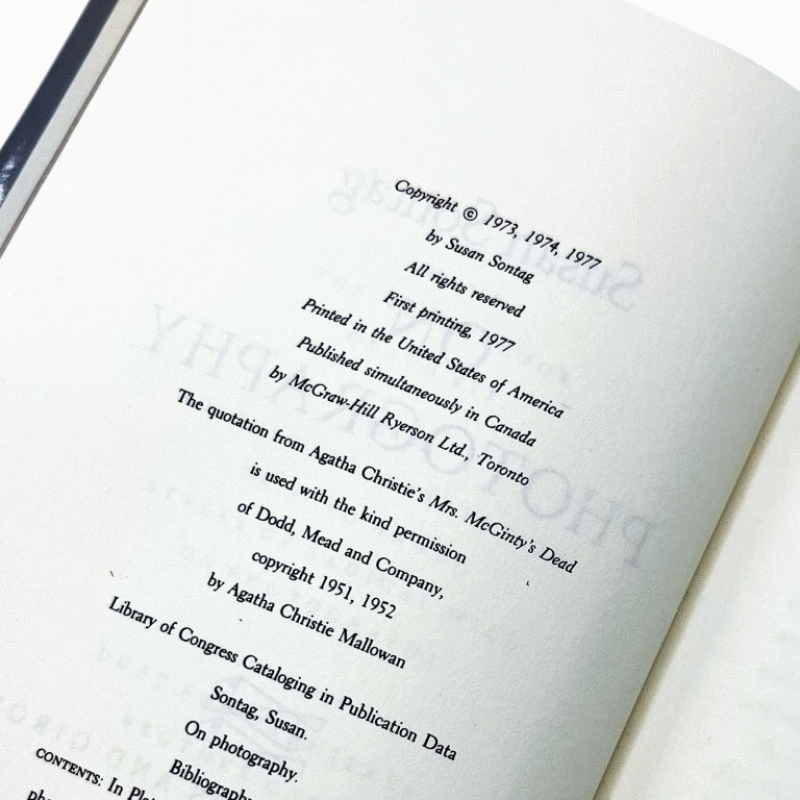 Copyright © 1973, 1974, 1977
by Susan Sontag
All rights reserved
First printing, 1977
Printed in the United States of America
Published simultaneously in Canada
by McGraw-Hill Ryerson Ltd., Toronto
The quotation from Agatha Christie's Mrs. McGinty's Dead
is used with the kind permission
of Dodd, Mead and Company,
copyright 1951, 1952
by Agatha Christie Mallowan
Library of Congress Cataloging in Publication Data
Sontag, Susan.
On photography.
CONTENTS: In
Susan Sontag
ON
PHOTOGRAPHY
AND GIROUX